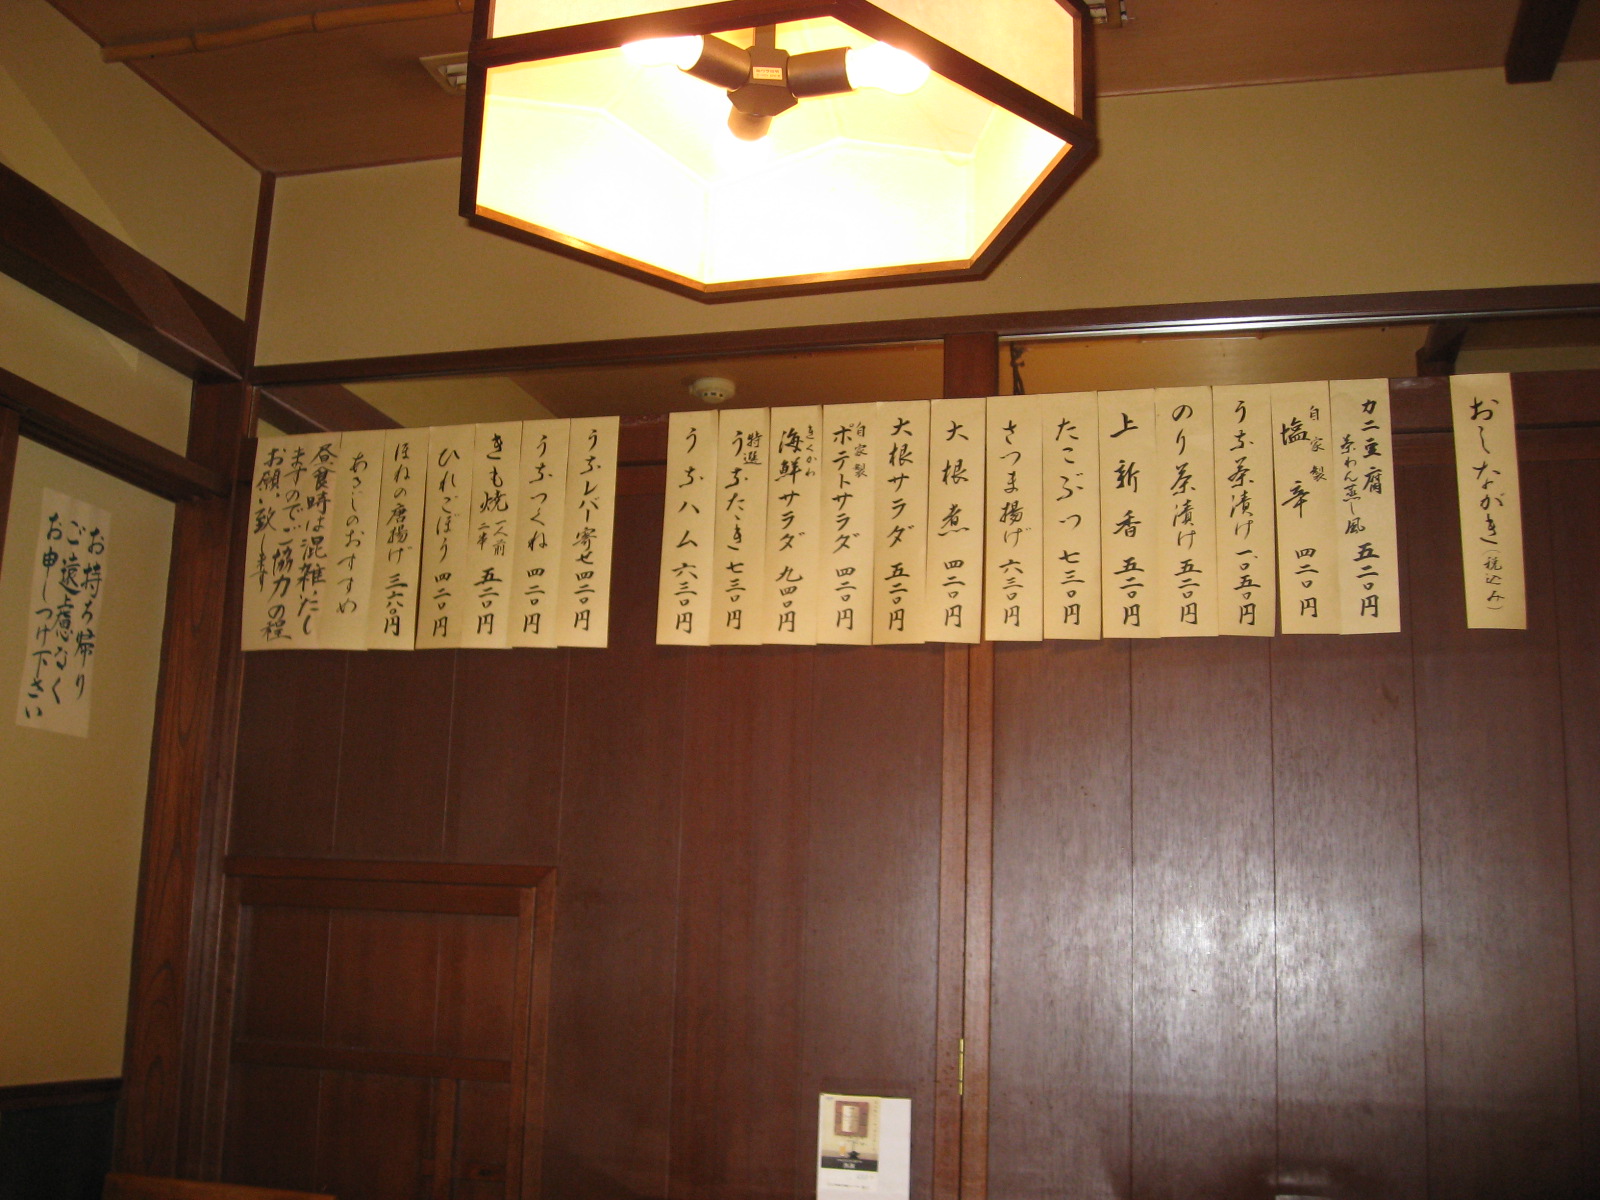 おしながき（税込み）
カニ豆腐 茶わん蒸し風 五二〇円
自家製 塩辛 四二〇円
うな茶漬け 一、〇五〇円
のり茶漬け 五二〇円
上新香 五二〇円
たこぶつ 七三〇円
さつま揚げ 六三〇円
大根煮 四二〇円
大根サラダ 五二〇円
自家製 ポテトサラダ 四二〇円
きくかわ 海鮮サラダ 九四〇円
特選 うなたゝき 七三〇円
うなハム 六三〇円
うなレバー寄せ 四二〇円
うなつくね 四二〇円
きも焼 一人前 二本 五二〇円
ひれごぼう 四二〇円
ほねの唐揚げ 三六〇円
あさじのおすすめ
昼食時は混雑いたし
ますのでご協力の程
お願い致します
お持ち帰り
ご遠慮なく
お申しつけ下さい